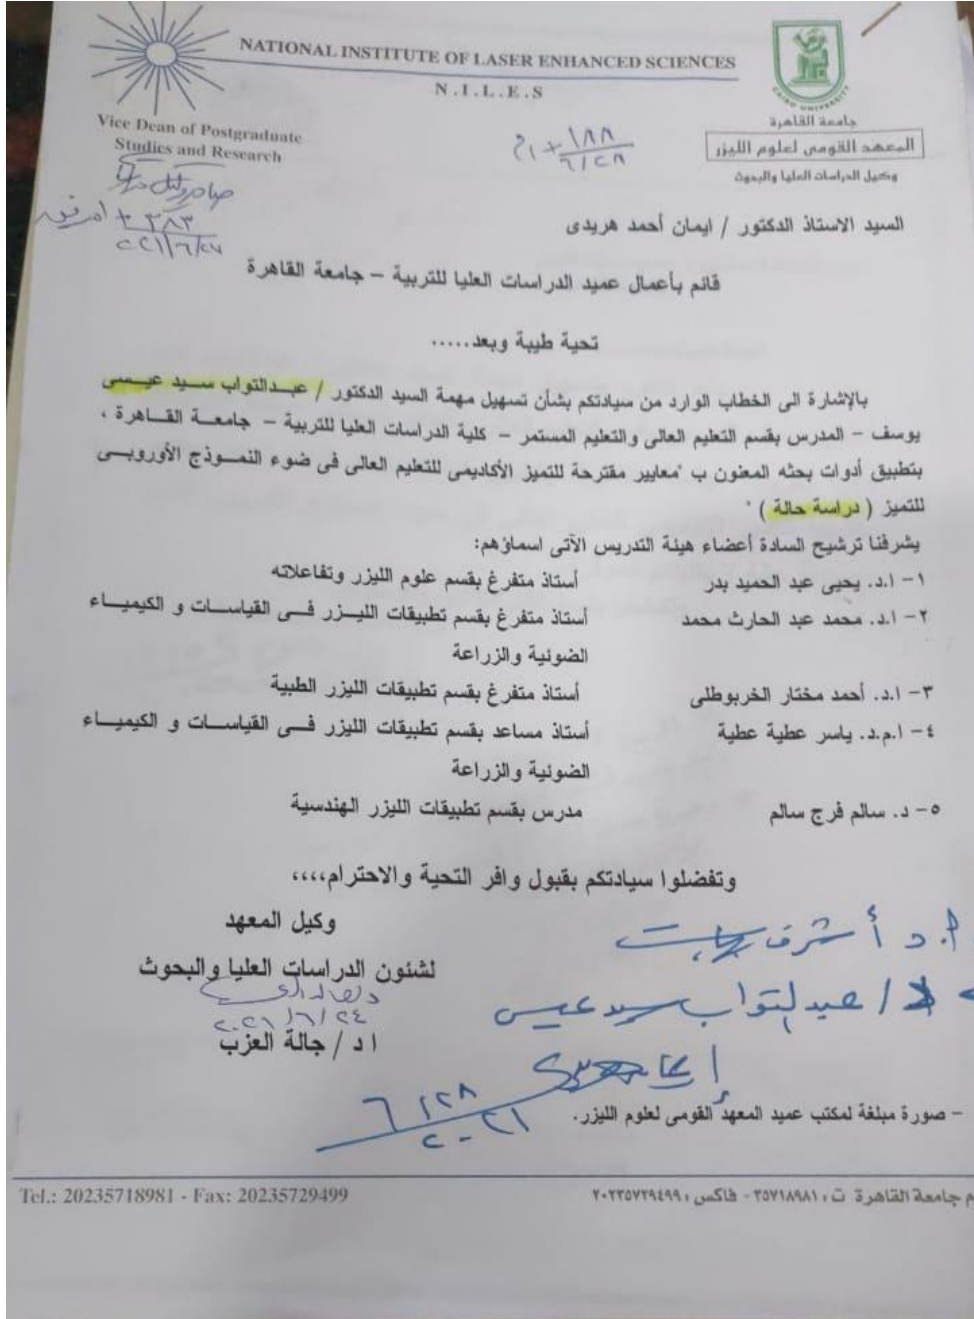 NATIONAL INSTITUTE OF LASER ENHANCED SCIENCES
N.I.L.E.S
Vice Dean of Postgraduate
Studies and Research
CAIRO UNIVERSITY
جامعة القاهرة
المعهد القومى لعلوم الليزر
وكيل الدراسات العليا والبحوث
١٨٨
٦/٢٨
٣٨٣
٢٠٢١/٦/٢٧
السيد الاستاذ الدكتور / ايمان أحمد هريدى
قائم بأعمال عميد الدراسات العليا للتربية – جامعة القاهرة
تحية طيبة وبعد.....
بالإشارة الى الخطاب الوارد من سيادتكم بشأن تسهيل مهمة السيد الدكتور / عبدالتواب سيد عيسى
يوسف – المدرس بقسم التعليم العالى والتعليم المستمر – كلية الدراسات العليا للتربية – جامعة القاهرة ،
بتطبيق أدوات بحثه المعنون ب "معايير مقترحة للتميز الأكاديمى للتعليم العالى فى ضوء النموذج الأوروبى
للتميز ( دراسة حالة ) "
يشرفنا ترشيح السادة أعضاء هيئة التدريس الآتى اسماؤهم:
١- ا.د. يحيى عبد الحميد بدر أستاذ متفرغ بقسم علوم الليزر وتفاعلاته
٢- ا.د. محمد عبد الحارث محمد أستاذ متفرغ بقسم تطبيقات الليزر فى القياسات و الكيمياء
الضوئية والزراعة
٣- ا.د. أحمد مختار الخربوطلى أستاذ متفرغ بقسم تطبيقات الليزر الطبية
٤- ا.م.د. ياسر عطية عطية أستاذ مساعد بقسم تطبيقات الليزر فى القياسات و الكيمياء
الضوئية والزراعة
٥- د. سالم فرج سالم مدرس بقسم تطبيقات الليزر الهندسية
وتفضلوا سيادتكم بقبول وافر التحية والاحترام،،،،
وكيل المعهد
لشئون الدراسات العليا والبحوث
٢٠٢١/٦/٢٤
ا د / جالة العزب
أ.د أشرف
د/ عبدالتواب سيد عيسى
٦/٢٨
٢٠٢١
- صورة مبلغة لمكتب عميد المعهد القومى لعلوم الليزر.
Tel.: 20235718981 - Fax: 20235729499
م جامعة القاهرة ت: ٣٥٧١٨٩٨١ - فاكس: ٢٠٢٣٥٧٢٩٤٩٩